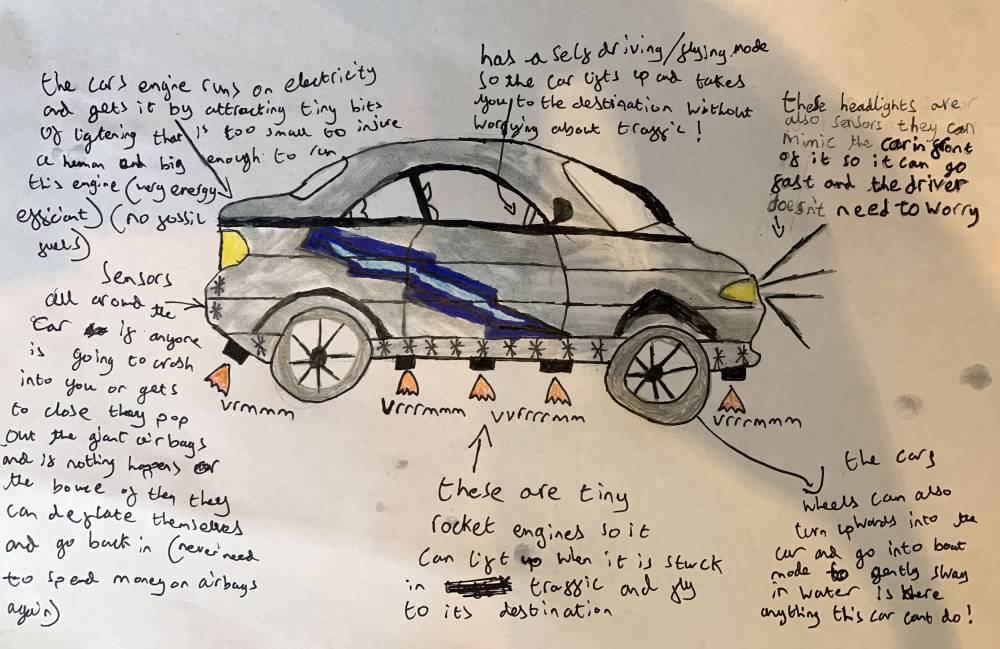 the cars engine runs on electricity
and gets it by attracting tiny bits
of ligtening that is too small to injure
a human and big enough to run
this engine (very energy
efficient) (no fossil
fuels)
has a self driving/flying mode
so the car lifts up and takes
you to the destination without
worrying about traffic!
these headlights are
also sensors they can
mimic the car in front
of it so it can go
fast and the driver
doesn't need to worry
Sensors
all around the
car if anyone
is going to crash
into you or gets
to close they pop
out the giant airbags
and if nothing happens or
the bounce of then they
can deflate themselves
and go back in (never need
to spend money on airbags
again)
vrmmm
vrrrmmm
vvrrrrmm
vrrrmmm
these are tiny
rocket engines so it
can lift up when it is stuck
in traffic and fly
to its destination
the cars
wheels can also
turn upwords into the
car and go into boat
mode to gently sway
in water is there
anything this car cant do!